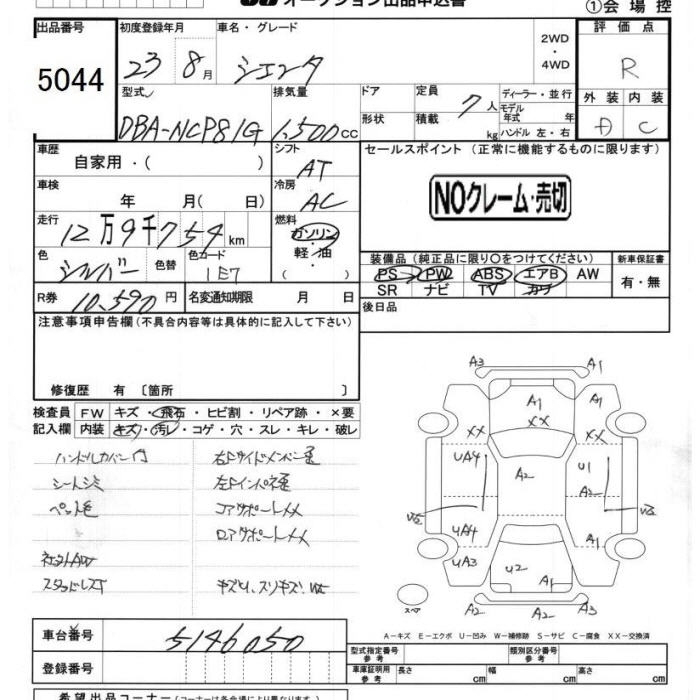 オークション出品申込書
①会場控
出品番号 初度登録年月 車名・グレード 評価点
5044 23 8月 シエンタ 2WD・4WD R
型式 排気量 ドア 定員 ディーラー・並行 外装 内装
DBA-NCP81G 1,500cc 形状 積載 7人 kg モデル年式 年 ハンドル 左・右 A C
車歴 シフト セールスポイント (正常に機能するものに限ります)
自家用・( ) AT
車検 冷房
年 月( 日) AC NOクレーム・売切
走行 燃料
12万9千754km ガソリン
軽・油
・( )
色 色替 色コード 装備品(純正品に限り○をつけてください) 新車保証書
シルバー 1E7 PS PW ABS エアB AW 有・無
SR ナビ TV カワ
R券 10,590円 名変通知期限 月 日 後日品
注意事項申告欄(不具合内容等は具体的に記入して下さい)
修復歴 有〔箇所 〕
検査員 FW キズ・飛石・ヒビ割・リペア跡・×要
記入欄 内装 キズ・汚レ・コゲ・穴・スレ・キレ・破レ
シートシミ
コアサポートXX
スタッドレス
A3 A1
A1 A1
XX
XX XX
UA4 U1
A2
A2
UA4 A1
UA3
U2
A1
A2 A2
スペア
A-キズ E-エクボ U-凹み W-補修跡 S-サビ C-腐食 XX-交換済
車台番号 5146050
型式指定番号 参考 類別区分番号 参考
登録番号 車庫証明用 参考 長さ cm 幅 cm 高さ cm
希望出品コーナー